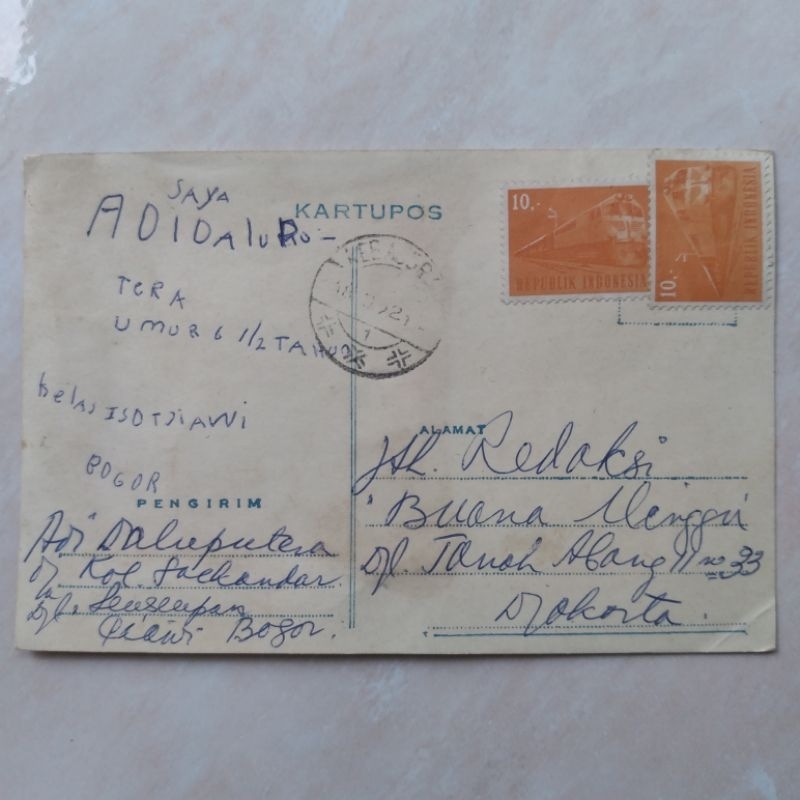 SAYA
ADIDALURU-
TERA
UMUR 6 1/2 TAHUN
Kelas ISDTJIAWI
BOGOR
PENGIRIM
Adi Daluputera
Kol. Soekandar
Djl.
Tjiawi Bogor.
KARTUPOS
10.-
REPUBLIK INDONESIA
10.-
REPUBLIK INDONESIA
1
ALAMAT
Jth. Redaksi
"Buana Minggu
Djl. Tanah Abang II no 33
Djakarta.